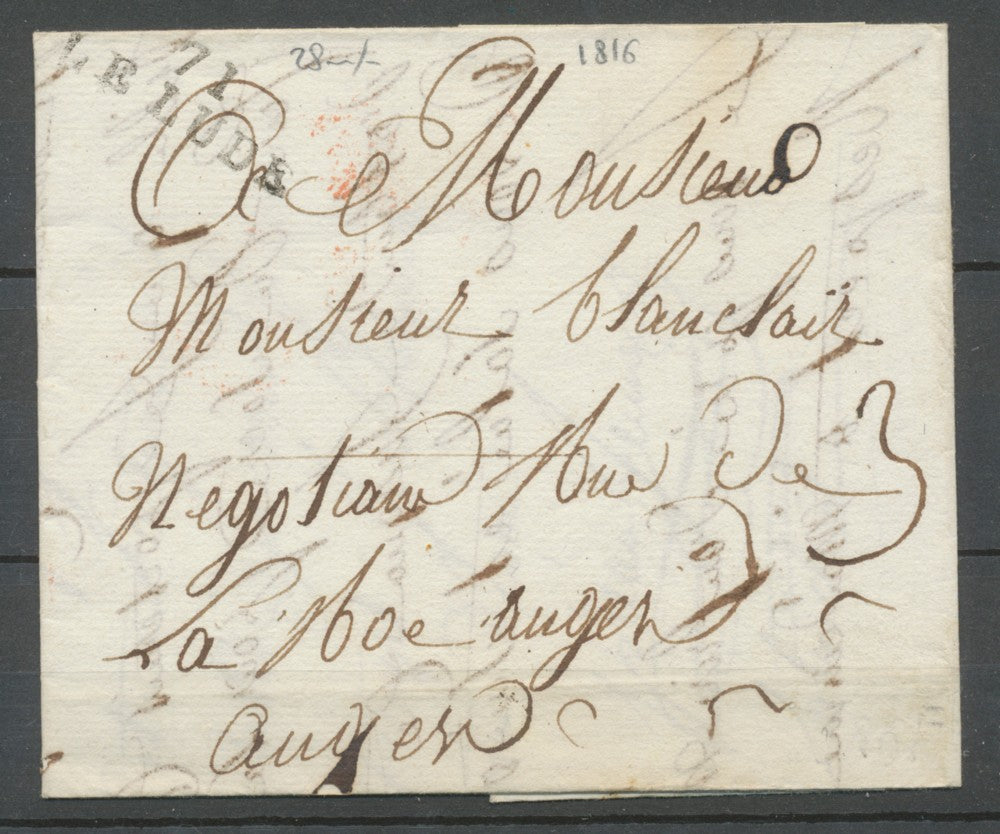 71
LE LUDE
28
1816
A Monsieur
Monsieur blanclair
Negotiant Rue De
3
La Roë anger
anger